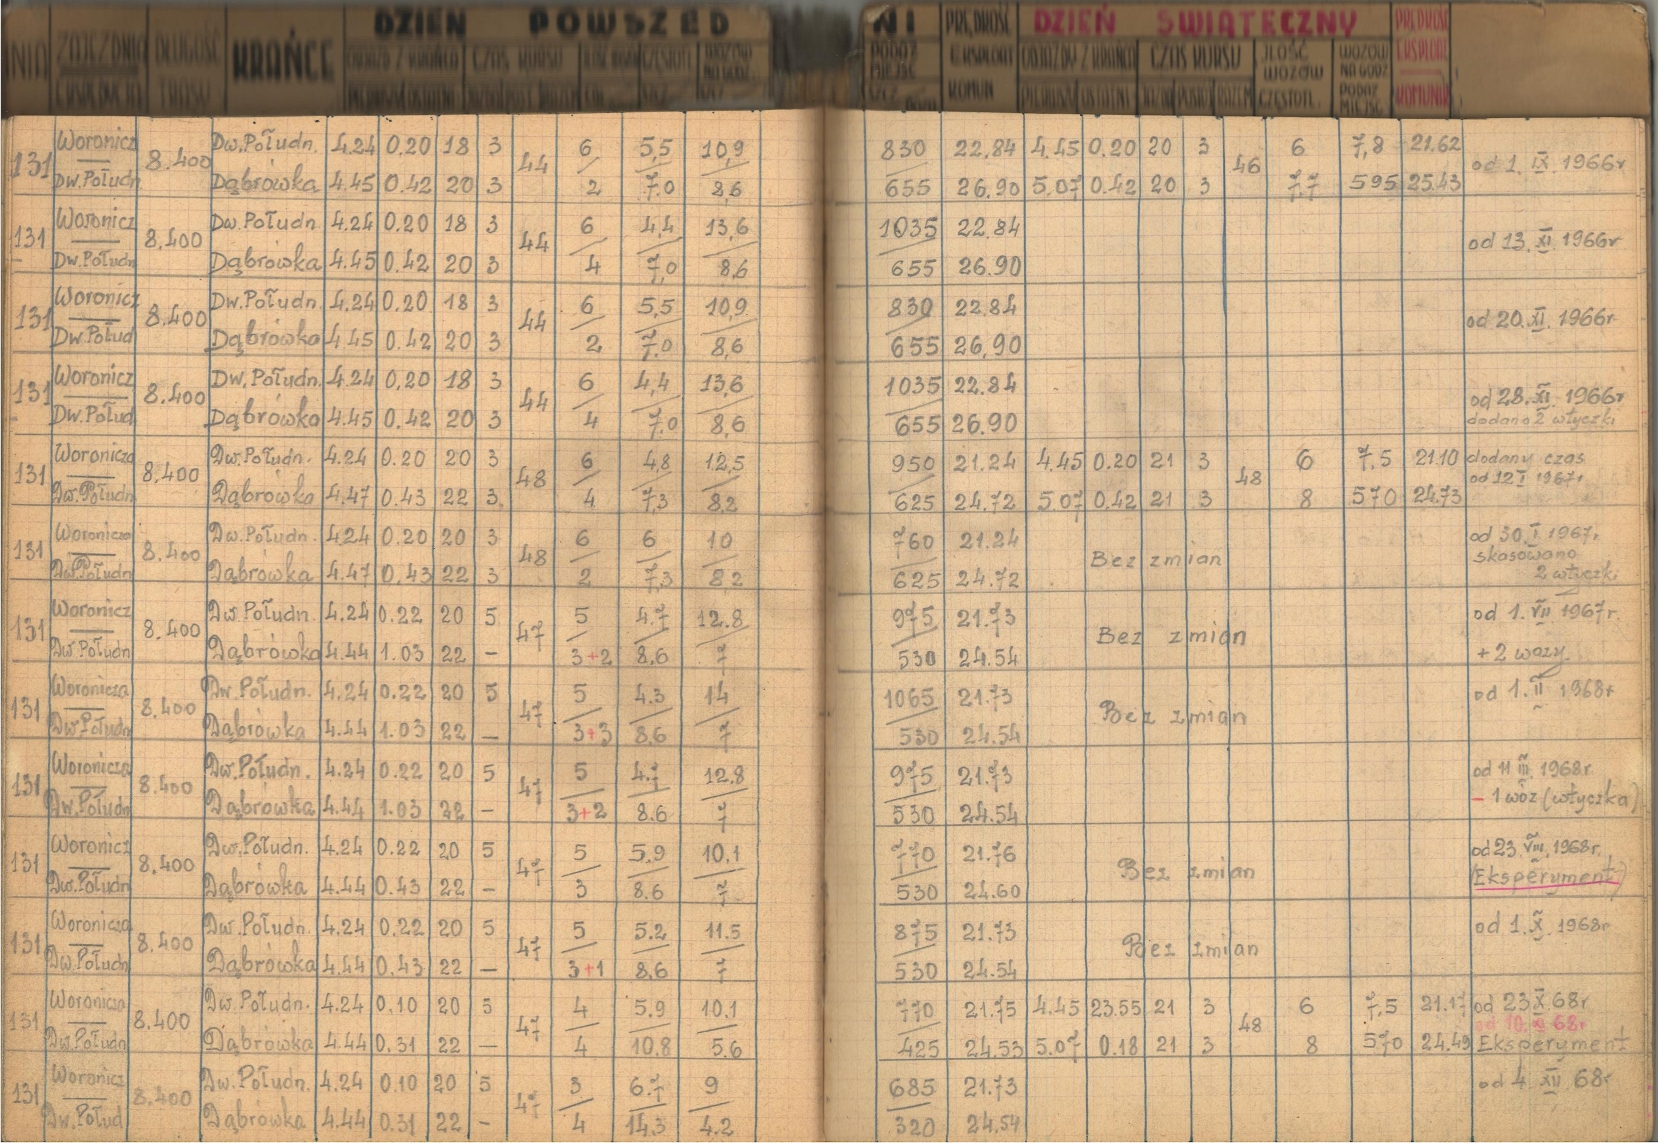 ZAJEZDNIA
DŁUGOŚĆ
TRASY
KRAŃCE
DZIEŃ POWSZEDNI
CZAS KURSU
PRĘDKOŚĆ
EKSPLOAT
KOMUN
DZIEŃ ŚWIĄTECZNY
ODJAZDY Z KRAŃCA
CZAS KURSU
ILOŚĆ
WOZÓW
CZĘSTOTL.
WOZÓW
NA GODZ
PODAŻ
MIEJSC
PRĘDKOŚĆ
EKSPLOAT
KOMUNIK
Woronicz Dw.Połudn. 4.24 0.20 18 3 6 5,5 10,9 830 22.84 4.45 0.20 20 3 6 7,8 21.62
131 8.400 44 46 od 1. IX 1966r
Dw.Połudn Dąbrówka 4.45 0.42 20 3 2 7.0 8,6 655 26.90 5.07 0.42 20 3 7,7 595 25.43
Woronicz Dw.Połudn 4.24 0.20 18 3 6 4,4 13,6 1035 22.84
131 8.400 44 od 13. XI 1966r
Dw.Połudn Dąbrówka 4.45 0.42 20 3 4 7,0 8,6 655 26.90
Woronicz Dw.Połudn. 4.24 0.20 18 3 6 5,5 10,9 830 22.84
131 8.400 44 od 20. XI. 1966r
Dw.Połud Dąbrówka 4.45 0.42 20 3 2 7.0 8,6 655 26,90
Woronicz Dw.Połudn. 4.24 0,20 18 3 6 4,4 13,6 1035 22.84
131 8.400 44 od 28. XI. 1966r
Dw.Połud Dąbrówka 4.45 0.42 20 3 4 7,0 8,6 655 26.90 dodano 2 wtyczki
Woronicza Dw.Połudn. 4.24 0.20 20 3 6 4,8 12,5 950 21.24 4.45 0.20 21 3 6 7,5 21.10 dodany czas
131 8.400 48 48 od 12 I 1967r
Dw.Połudn Dąbrówka 4.47 0.43 22 3. 4 7,3 8,2 625 24.72 5.07 0.42 21 3 8 570 24.73
Woronicza Dw.Połudn. 4.24 0.20 20 3 6 6 10 760 21.24 od 30. I 1967r
131 8.400 48 Bez zmian skasowano
Dw.Połudn Dąbrówka 4.47 0.43 22 3 2 7,3 8,2 625 24.72 2 wtyczki
Woronicz Dw.Połudn 4.24 0.22 20 5 5 4.7 12.8 975 21.73 od 1. VII 1967r.
131 8.400 47 Bez zmian
Dw.Połudn Dąbrówka 4.44 1.03 22 – 3+2 8.6 7 530 24.54 +2 wozy
Woronicza Dw.Połudn. 4.24 0.22 20 5 5 4.3 14 1065 21.73 od 1. II 1968r
131 8.400 47 Bez zmian
Dw.Połudn Dąbrówka 4.44 1.03 22 – 3+3 8.6 7 530 24.54
Woronicza Dw.Połudn. 4.24 0.22 20 5 5 4.7 12.8 975 21.73 od 11 III. 1968r
131 8.400 47 – 1 wóz (wtyczka)
Dw.Połudn Dąbrówka 4.44 1.03 22 – 3+2 8.6 7 530 24.54
Woronicz Dw.Połudn. 4.24 0.22 20 5 5 5.9 10.1 770 21.76 od 23. VIII. 1968r.
131 8.400 47 Bez zmian (Eksperyment)
Dw.Połudn Dąbrówka 4.44 0.43 22 – 3 8.6 7 530 24.60
Woronicza Dw.Połudn. 4.24 0.22 20 5 5 5.2 11.5 875 21.73 od 1. X. 1968r
131 8.400 47 Bez zmian
Dw.Połudn Dąbrówka 4.44 0.43 22 – 3+1 8,6 7 530 24.54
Woronicza Dw.Połudn. 4.24 0,10 20 5 4 5.9 10,1 770 21.75 4.45 23.55 21 3 6 7,5 21.17 od 23 X 68r
131 8.400 47 48
Dw.Połudn Dąbrówka 4.44 0.31 22 – 4 10.8 5.6 425 24.53 5.07 0.18 21 3 8 570 24.49 Eksperyment
Woronicz Dw.Połudn. 4.24 0.10 20 5 3 6.7 9 685 21.73 od 4 XII 68r
131 8.400 47
Dw.Połud Dąbrówka 4.44 0.31 22 – 4 14.3 4.2 320 24,54